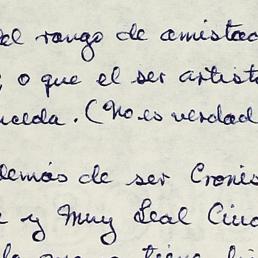 del rango de amistad
, o que el ser artist
ueda. (No es verdad
demás de ser Cronis
e y Muy Leal Ciud